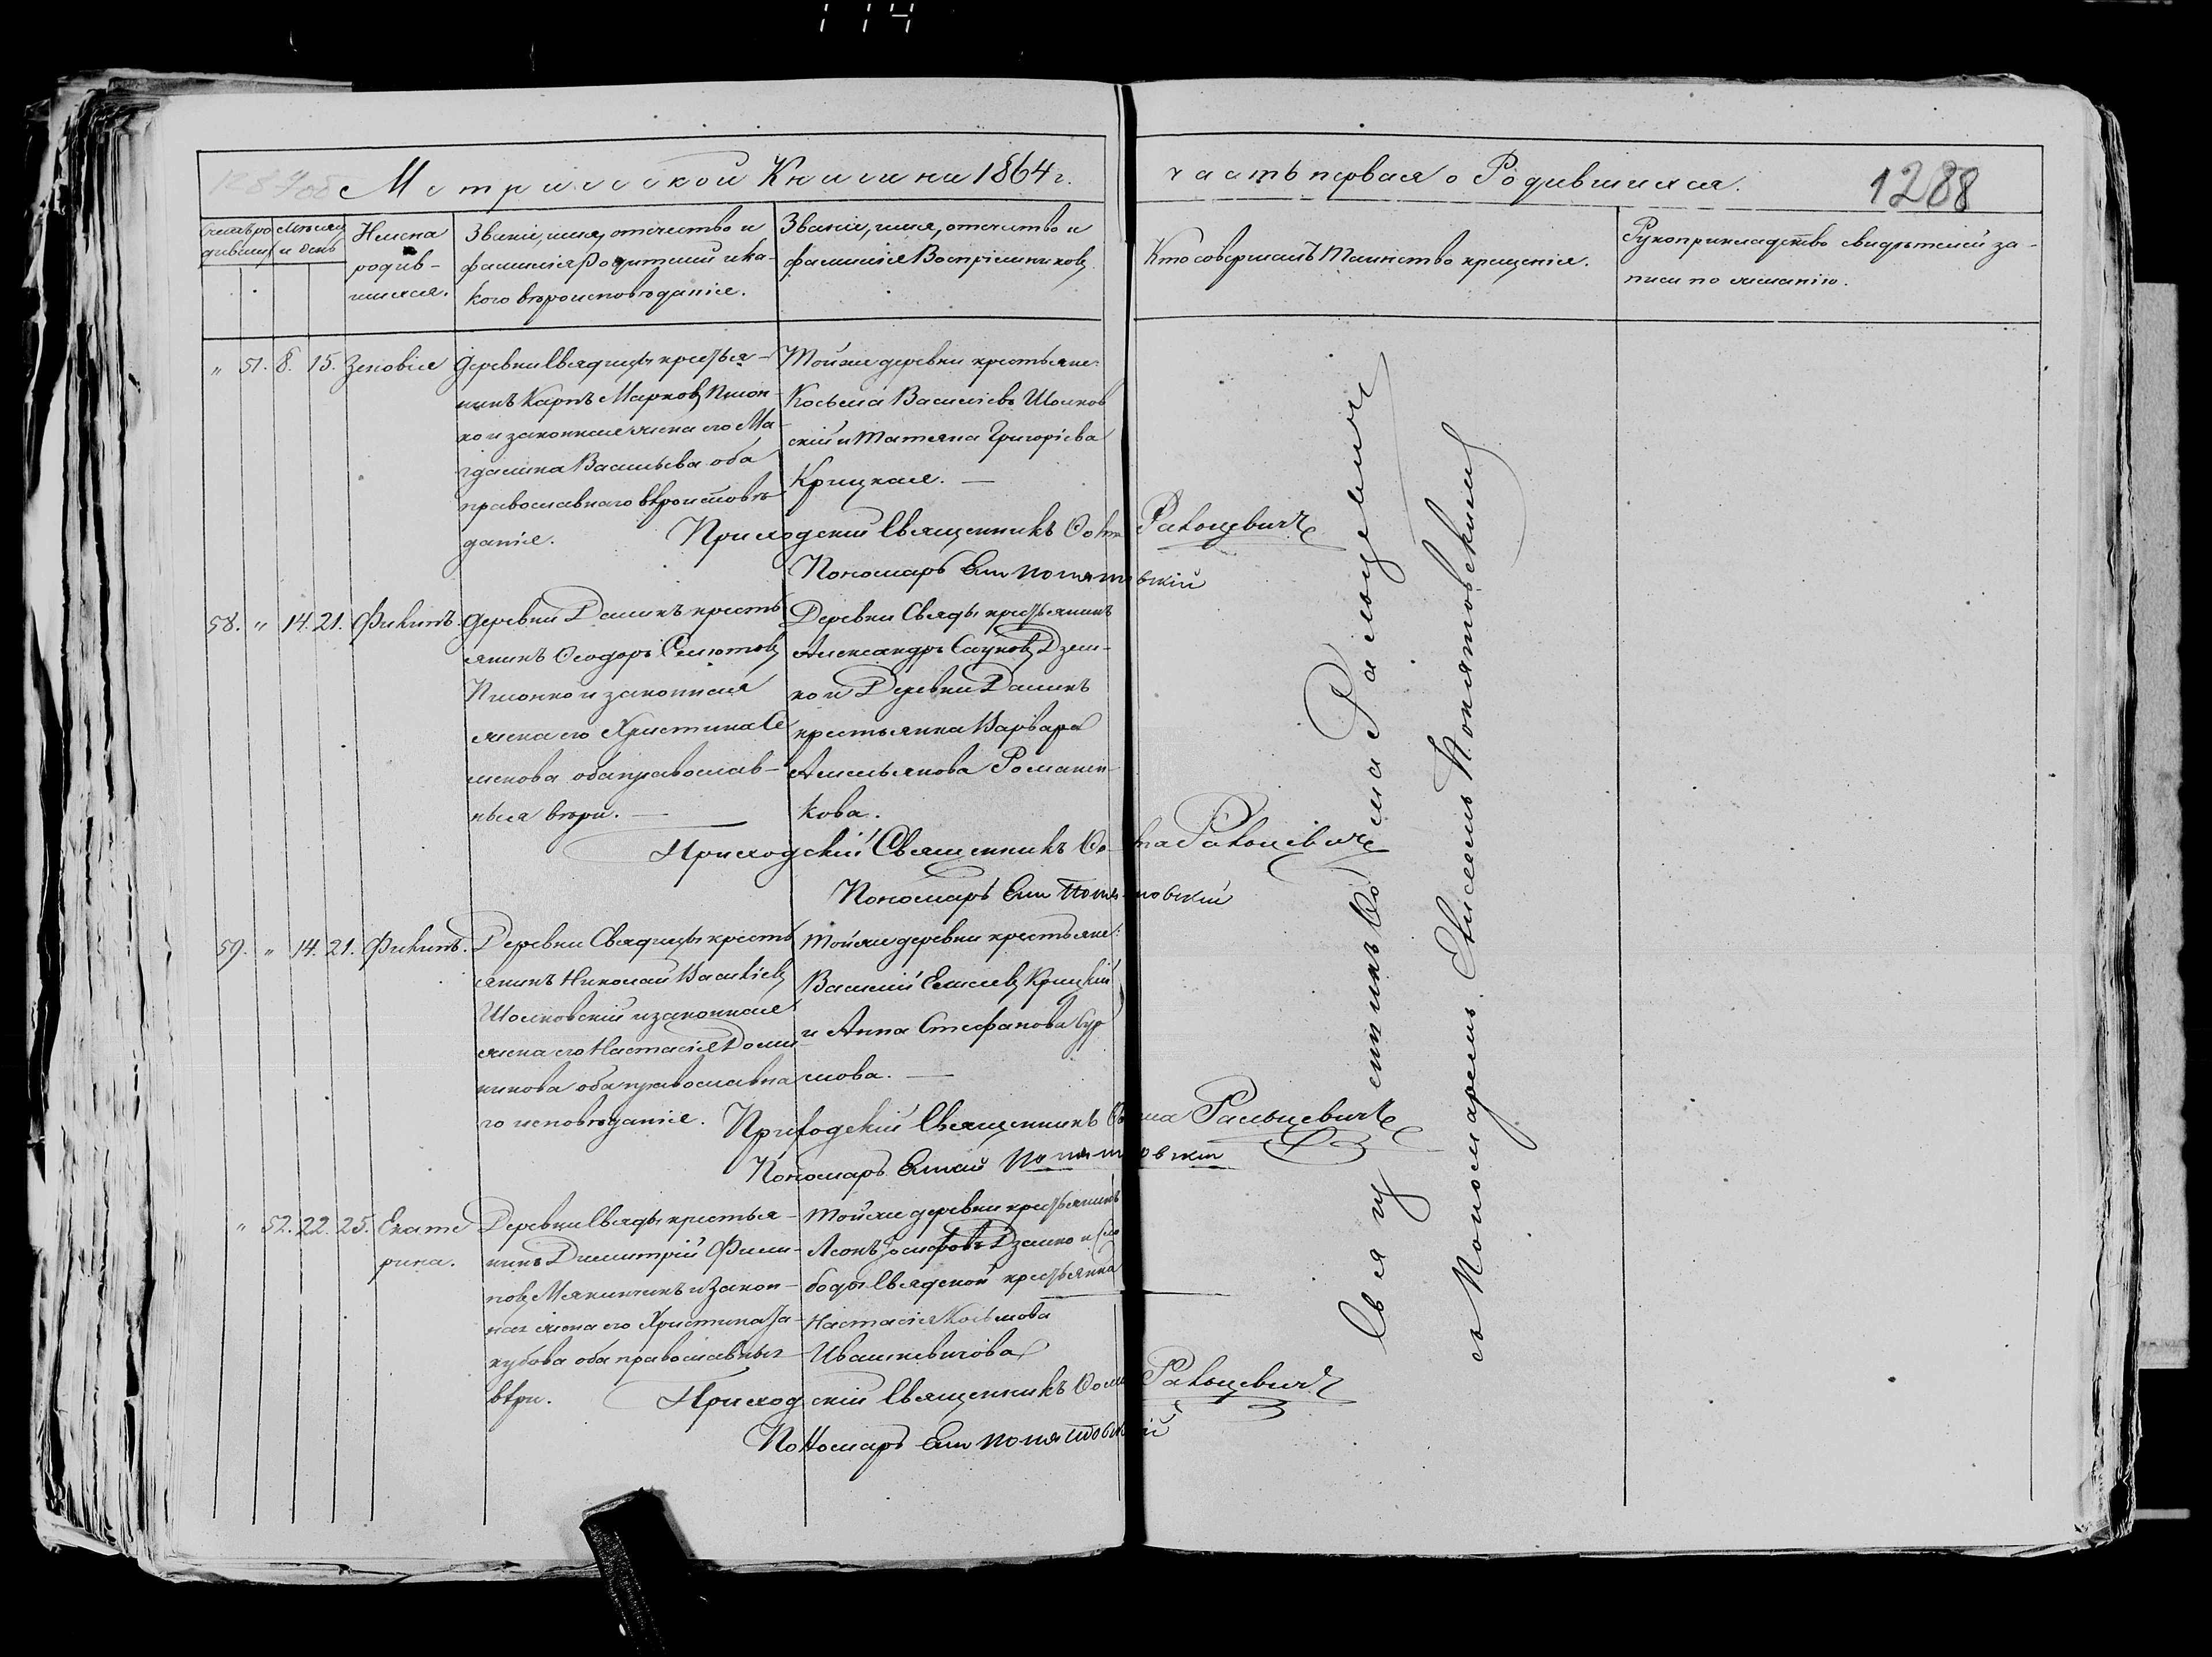 114
1287 об
Метрической Книги на 1864 г.
часть первая о Родившихся.
1288
Счетъ ро
дившихся
Мѣсяц
и день
Имена
родив-
шихся.
Званіе, имя, отчество и
фамилія Родителей и ка-
кого вѣроисповѣданія.
Званіе, имя, отчество и
фамилія Воспріемниковъ
Кто совершалъ Таинство крещенія.
Рукоприкладство свидѣтелей за-
писи по желанію.
" 51. 8. 15. Зеновія
Деревни Свядицы крестья-
нинъ Карпъ Марковъ
ко и законная жена его Ма-
гдалина Васильева оба
православнаго вѣроисповѣ-
данія.
Той же деревни крестьяне:
Косьма Василіевъ Шолков
скій и Татяна Григоріева
Крицкая. —
Приходскій Священникъ Ѳома Ральцевичъ
Пономарь Емил Понятовскій
58. " 14. 21. Филипъ.
деревни Даликъ кресть
янинъ Ѳеодоръ
и законная
жена его Христина Се
менова оба православ-
ныя вѣры. —
Деревни Свяды крестьянинъ
Александръ Дзем-
ко и Деревни Даликъ
крестьянка Варвара
Амельянова Романен-
кова.
Приходскій Священникъ Ѳома Ральцевичъ
Пономарь Емил Понятовскій
59. " 14. 21. Филипъ.
Деревни Свядицы кресть
янинъ Николай Василіевъ
Шолковскій и законная
жена его Настасія Доми
никова оба православна
го исповѣданія.
Той же деревни крестьяне:
Василій Крицкій
и Анна Стефанова Сур
мова. —
Приходскій Священникъ Ѳома Ральцевичъ
Пономарь Понятовскій
" 52. 22. 25. Екате
рина.
Деревни Свяды крестья-
нинъ Димитрій Фили-
повъ и закон-
ная жена его Христина Ja-
кубова оба православныя
вѣры.
Той же деревни крестьянинъ
Леонъ Іосифовъ Дземко и Сло
боды Свядской крестьянка
Настасія Косьмова
Ивашкевичова
Приходскій Священникъ Ѳома Ральцевичъ
Пономарь Емил Понятовскій
Священникъ Ѳома Ральцевичъ
съ Пономаремъ Понятовскимъ